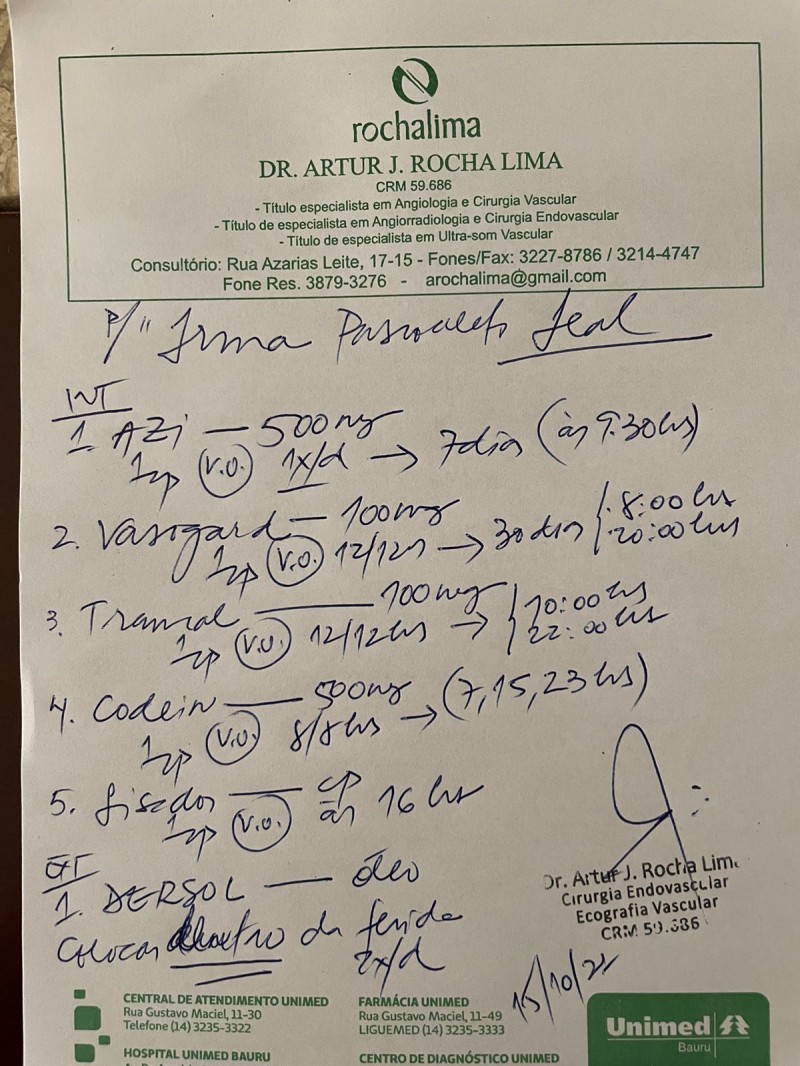 rochalima
DR. ARTUR J. ROCHA LIMA
CRM 59.686
- Título especialista em Angiologia e Cirurgia Vascular
- Título de especialista em Angiorradiologia e Cirurgia Endovascular
- Título de especialista em Ultra-som Vascular
Consultório: Rua Azarias Leite, 17-15 - Fones/Fax: 3227-8786 / 3214-4747
Fone Res. 3879-3276 - arochalima@gmail.com
P/ Irma Leal
INT
1. AZi — 500mg
1cp V.O. 1x/d → 7 dias (às 9:30hs)
2. Vasogard — 100mg
1cp V.O. 12/12hs → 30 dias 8:00hs
20:00hs
3. Tramal — 100mg
1cp V.O. 12/12hs → 10:00hs
22:00hs
4. Codein — 500mg
1cp V.O. 8/8hs → (7, 15, 23hs)
5. Lisador — cp
1cp V.O. às 16hs
EXT
1. DERSOL — óleo
Colocar dentro da ferida
2x/d
Dr. Artur J. Rocha Lima
Cirurgia Endovascular
Ecografia Vascular
CRM 59.686
15/10/22
CENTRAL DE ATENDIMENTO UNIMED
Rua Gustavo Maciel, 11-30
Telefone (14) 3235-3322
HOSPITAL UNIMED BAURU
FARMÁCIA UNIMED
Rua Gustavo Maciel, 11-49
LIGUEMED (14) 3235-3333
CENTRO DE DIAGNÓSTICO UNIMED
Unimed
Bauru